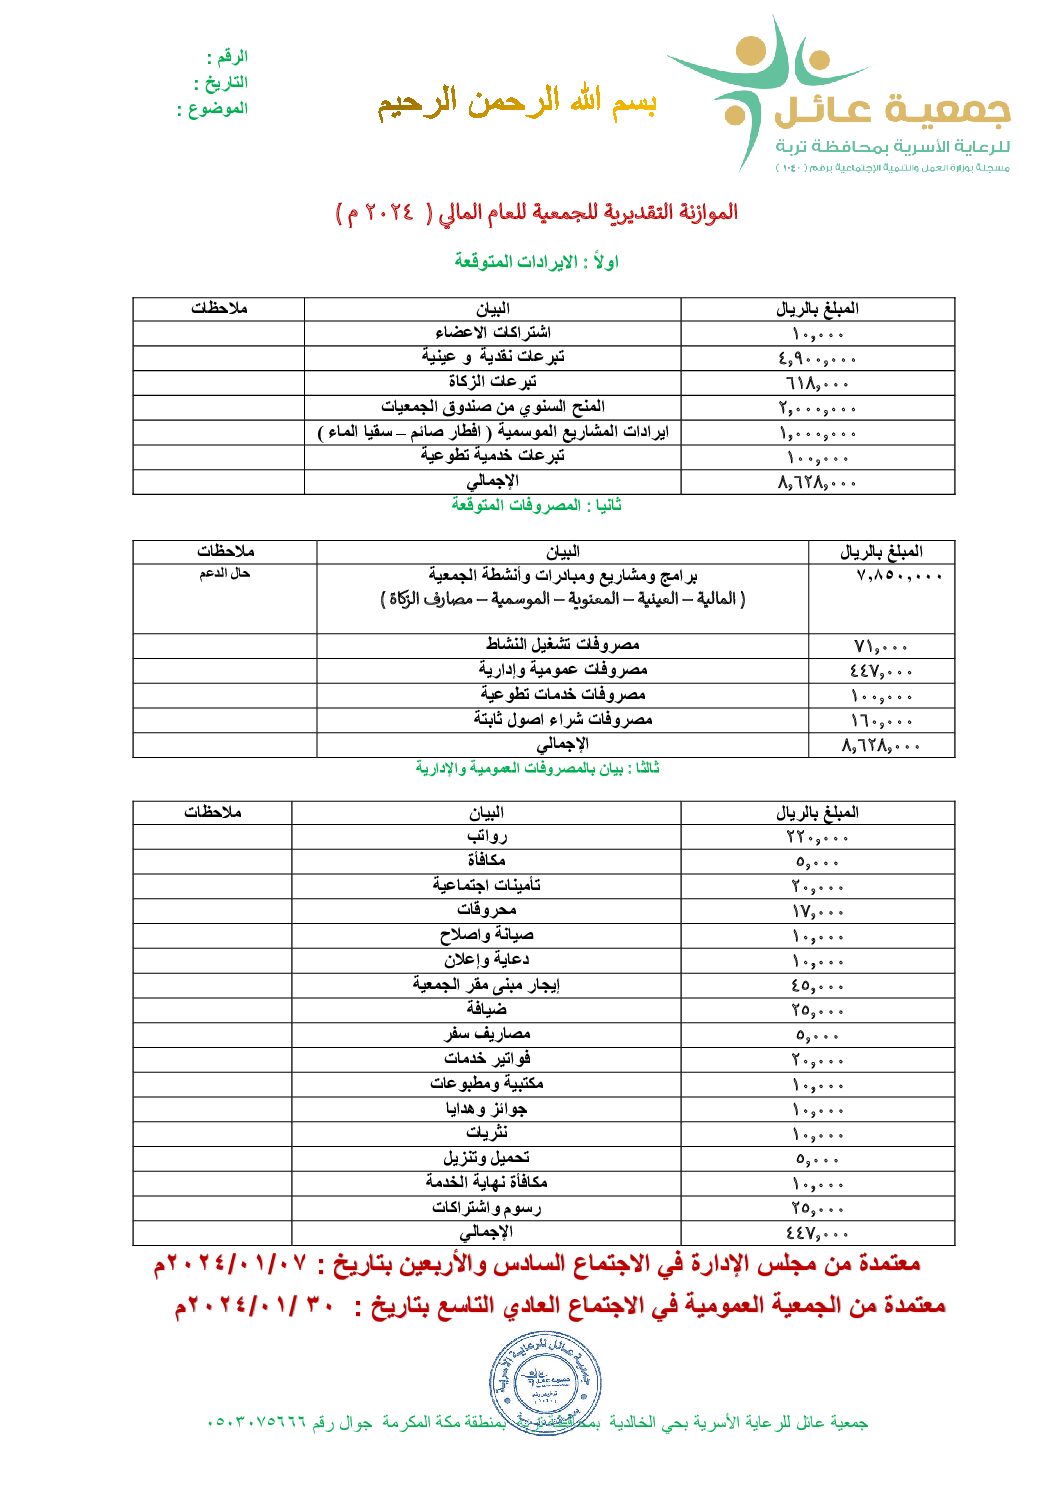 جمعية عائل
للرعاية الأسرية بمحافظة تربة
مسجلة بوزارة العمل والتنمية الإجتماعية برقم ( ١٠٤٠ )
الرقم :
التاريخ :
الموضوع :
بسم الله الرحمن الرحيم
الموازنة التقديرية للجمعية للعام المالي ( ٢٠٢٤ م )
اولاً : الايرادات المتوقعة
المبلغ بالريال البيان ملاحظات
١٠,٠٠٠ اشتراكات الاعضاء
٤,٩٠٠,٠٠٠ تبرعات نقدية و عينية
٦١٨,٠٠٠ تبرعات الزكاة
٢,٠٠٠,٠٠٠ المنح السنوي من صندوق الجمعيات
١,٠٠٠,٠٠٠ ايرادات المشاريع الموسمية ( افطار صائم – سقيا الماء )
١٠٠,٠٠٠ تبرعات خدمية تطوعية
٨,٦٢٨,٠٠٠ الإجمالي
ثانيا : المصروفات المتوقعة
المبلغ بالريال البيان ملاحظات
٧,٨٥٠,٠٠٠ برامج ومشاريع ومبادرات وأنشطة الجمعية حال الدعم
( المالية – العينية – المعنوية – الموسمية – مصارف الزكاة )
٧١,٠٠٠ مصروفات تشغيل النشاط
٤٤٧,٠٠٠ مصروفات عمومية وإدارية
١٠٠,٠٠٠ مصروفات خدمات تطوعية
١٦٠,٠٠٠ مصروفات شراء اصول ثابتة
٨,٦٢٨,٠٠٠ الإجمالي
ثالثا : بيان بالمصروفات العمومية والإدارية
المبلغ بالريال البيان ملاحظات
٢٢٠,٠٠٠ رواتب
٥,٠٠٠ مكافأة
٢٠,٠٠٠ تأمينات اجتماعية
١٧,٠٠٠ محروقات
١٠,٠٠٠ صيانة واصلاح
١٠,٠٠٠ دعاية وإعلان
٤٥,٠٠٠ إيجار مبنى مقر الجمعية
٢٥,٠٠٠ ضيافة
٥,٠٠٠ مصاريف سفر
٢٠,٠٠٠ فواتير خدمات
١٠,٠٠٠ مكتبية ومطبوعات
١٠,٠٠٠ جوائز وهدايا
١٠,٠٠٠ نثريات
٥,٠٠٠ تحميل وتنزيل
١٠,٠٠٠ مكافأة نهاية الخدمة
٢٥,٠٠٠ رسوم واشتراكات
٤٤٧,٠٠٠ الإجمالي
معتمدة من مجلس الإدارة في الاجتماع السادس والأربعين بتاريخ : ٢٠٢٤/٠١/٠٧م
معتمدة من الجمعية العمومية في الاجتماع العادي التاسع بتاريخ : ٣٠ /٢٠٢٤/٠١م
جمعية عائل للرعاية الأسرية
جمعية عائل
جمعية عائل للرعاية الأسرية بحي الخالدية بمحافظة تربة بمنطقة مكة المكرمة جوال رقم ٠٥٠٣٠٧٥٦٦٦